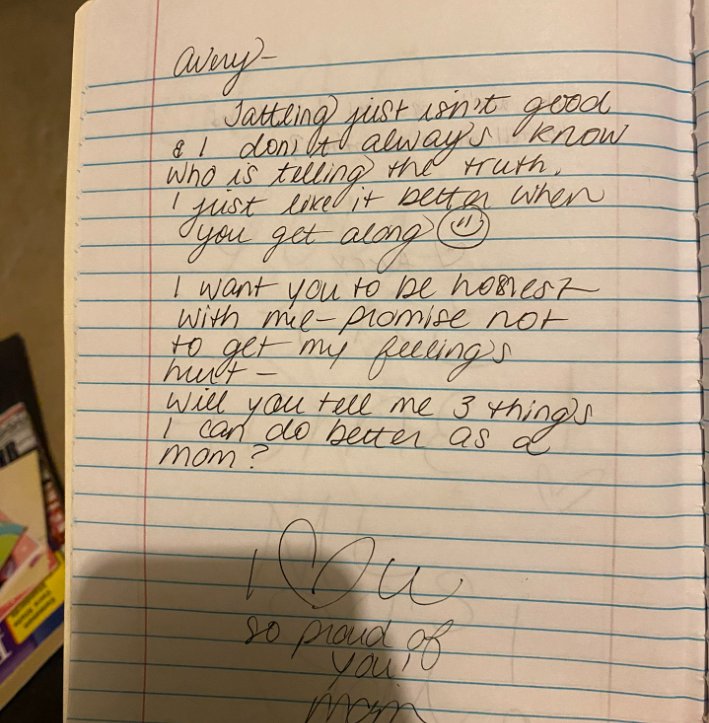 Avery-
Tattling just isn't good
& I don't always know
who is telling the truth.
I just like it better when
you get along
I want you to be honest
with me- promise not
to get my feelings
hurt -
Will you tell me 3 things
I can do better as a
mom?
I ♡ U
so proud of
you!
mom